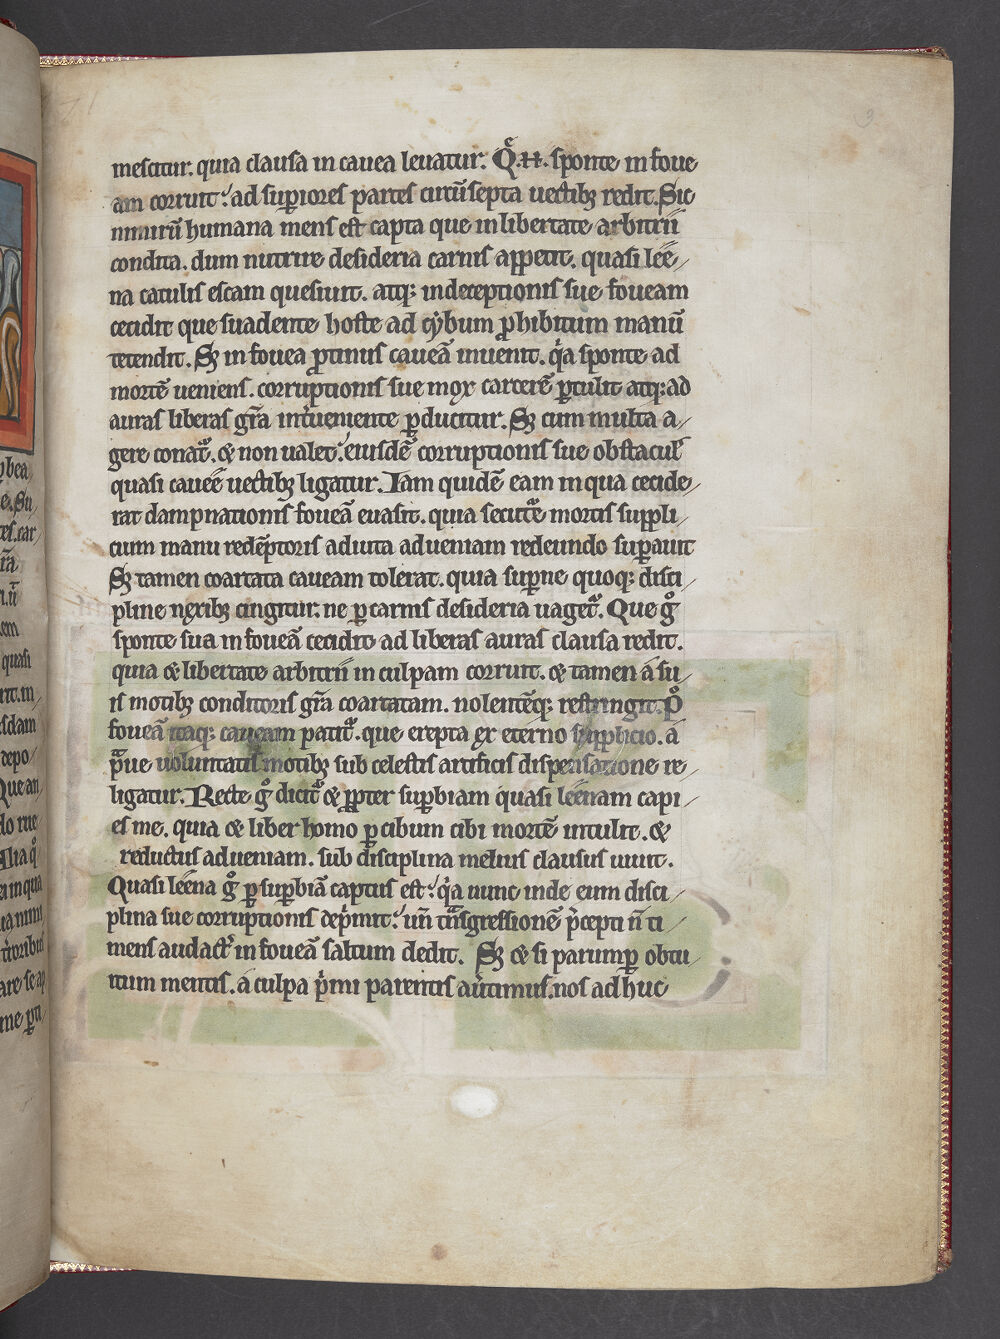 mescitur. quia clausa in cauea leuatur. Qͣ. sponte in foue
am corruit: ad suꝑiores partes circūsepta uectibꝫ redit. Sic
nimirū humana mens est capta que in libertate arbitrii
condita. dum nutrire desideria carnis appetit. quasi leę-
na catulis escam quesiuit. atqꝫ in deceptionis sue foueam
cecidit que suadente hoste ad cybum ꝓhibitum manū
tetendit. Sꝫ in fouea ꝓtinus caueā inuenit. qͥa sponte ad
mortē ueniens. corruptionis sue mox carcerē ꝑtulit atqꝫ ad
auras liberas gr̄a int̓ueniente ꝑducitur. Sꝫ cum multa a-
gere conatᷣ. & non ualet: eiusdē corruptionis sue obstaculꝰ
quasi caueę uectibꝫ ligatur. Iam quidē eam in qua cecide-
rat dampnationis foueā euasit. quia secutᷣę mortis suppli-
cium manu redēptoris adiuta ad ueniam redeundo suꝑauit
Sꝫ tamen coartata caueam tolerat. quia suꝑne quoqꝫ disci-
pline nexibꝫ cingitur: ne ꝑ carnis desideria uagetᷣ. Que gͦ
sponte sua in foueā cecidit ad liberas auras clausa redit.
quia & libertate arbitrii in culpam corruit. & tamen a su-
is motibꝫ conditoris gr̄a coartatam. nolentēqꝫ restringit. Pͦ
foueā itaqꝫ caueam patitᷣ. que erepta ex eterno supplicio. a
pͣue uoluntatis motibꝫ sub celestis artificis dispensatione re-
ligatur. Recte gͦ dicitᷣ & ꝓpter suꝑbiam quasi leęnam capi-
es me. quia & liber homo ꝑ cibum cibi mortē intulit. &
reductus ad ueniam. sub disciplina melius clausus uiuit.
Quasi leęna gͦ ꝑ suꝑbiā captus est: qͥa nunc inde eum disci-
plina sue corruptionis dep̓mit: un̄ tͣnsgressionē p̓cepti n̄ ti-
mens audactᷣ in foueā saltum dedit. Sꝫ & si parumꝑ obtu-
itum mentis. a culpa pͥmi parentis au̓timus. nos adhuc